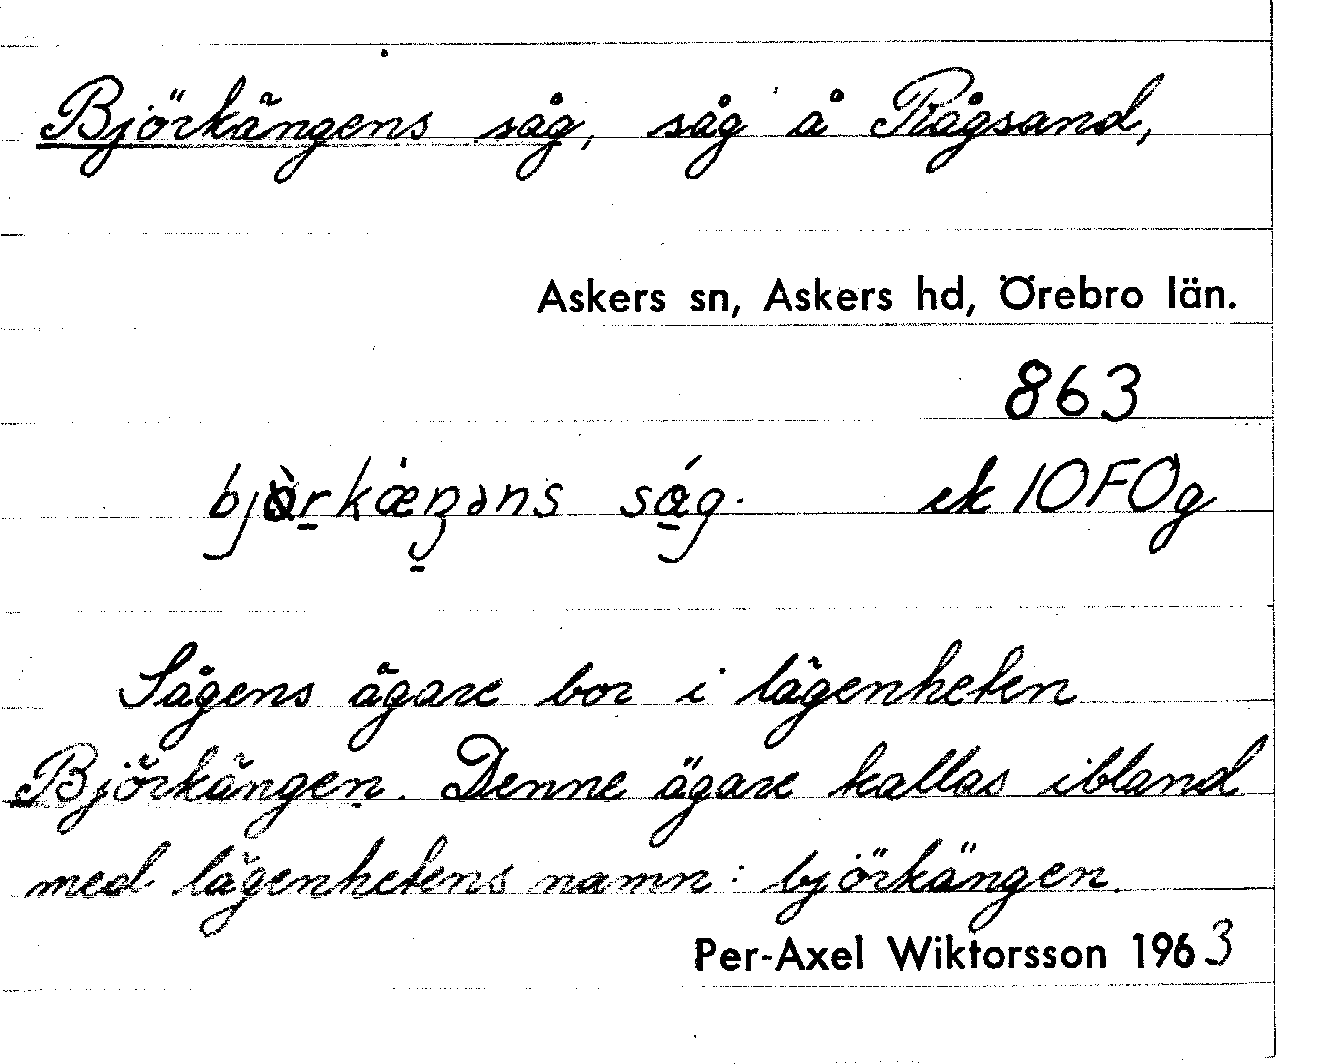 Björkängens såg, såg å Rågsand,
Askers sn, Askers hd, Örebro län.
863
bjòrkæŋəns ság. ek 10F0g
Sågens ägare bor i lägenheten
Björkängen. Denne ägare kallas ibland
med lägenhetens namn: björkängen.
Per-Axel Wiktorsson 1963